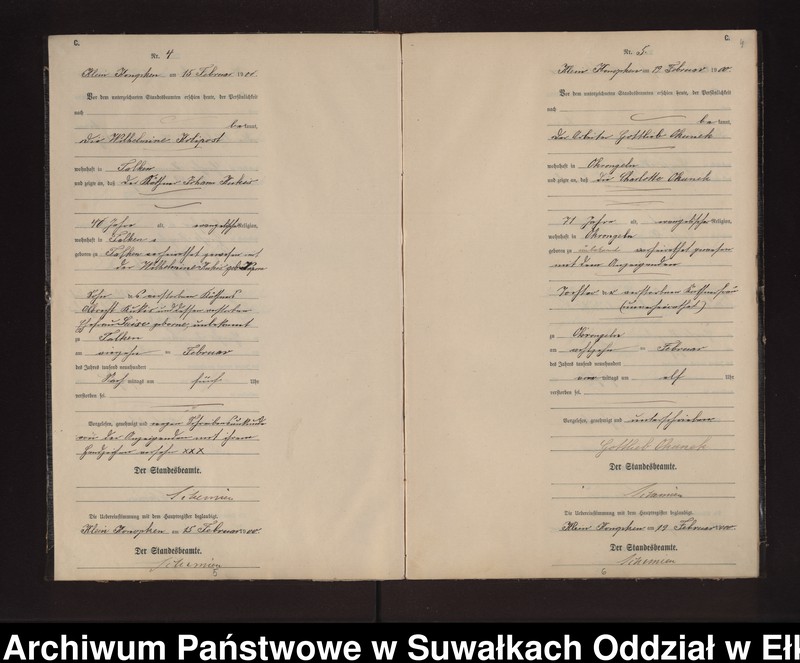 C.
Nr. 4
Klein Konopken am 15 Februar 1900
Vor dem unterzeichneten Standesbeamten erschien heute, der Persönlichkeit
nach
be kannt,
die Wilhelmine
wohnhaft in Talken
und zeigte an, daß der Käthner Johann
46 Jahre alt, evangelischer Religion,
wohnhaft in Talken
geboren zu Talken verheirathet gewesen mit
der Wilhelmine geb.
Sohn des verstorbenen Käthners
und dessen verstorbenen
Ehefrau Luise geborene unbekannt
zu Talken
am Februar
des Jahres tausend neunhundert
Nach mittags um fünf Uhr
verstorben sei.
Vorgelesen, genehmigt und wegen Schreibensunkunde
von der Anzeigenden mit ihrem
Handzeichen versehen XXX
Der Standesbeamte.
Die Uebereinstimmung mit dem Hauptregister beglaubigt.
Klein Konopken am 15 Februar 1900
Der Standesbeamte.
5
C.
Nr. 5.
Klein Konopken am 19 Februar 1900.
Vor dem unterzeichneten Standesbeamten erschien heute, der Persönlichkeit
nach
be kannt,
der Arbeiter Gottlieb
wohnhaft in Okrongeln
und zeigte an, daß die Charlotte
71 Jahre alt, evangelischer Religion,
wohnhaft in Okrongeln
geboren zu unbekannt verheirathet gewesen
mit dem Anzeigenden
Tochter der verstorbenen
zu Okrongeln
am Februar
des Jahres tausend neunhundert
vor mittags um elf Uhr
verstorben sei.
Vorgelesen, genehmigt und unterschrieben
Gottlieb
Der Standesbeamte.
Die Uebereinstimmung mit dem Hauptregister beglaubigt.
Klein Konopken am 19 Februar 1900.
Der Standesbeamte.
6
Archiwum Państwowe w Suwałkach Oddział w Ełk